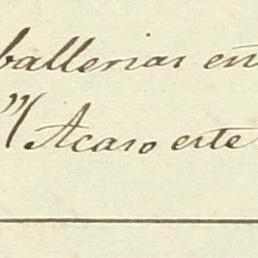 ballerias en
"(Acaso este